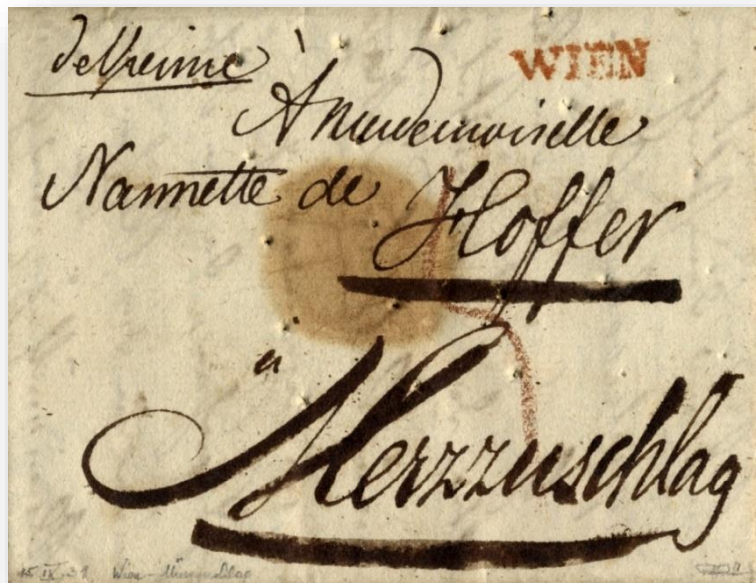 deVienne
WIEN
À Mademoiselle
Nannette de Hoffer
a
Merzzuschlag
15 IX 31 Wien - Mürzzuschlag